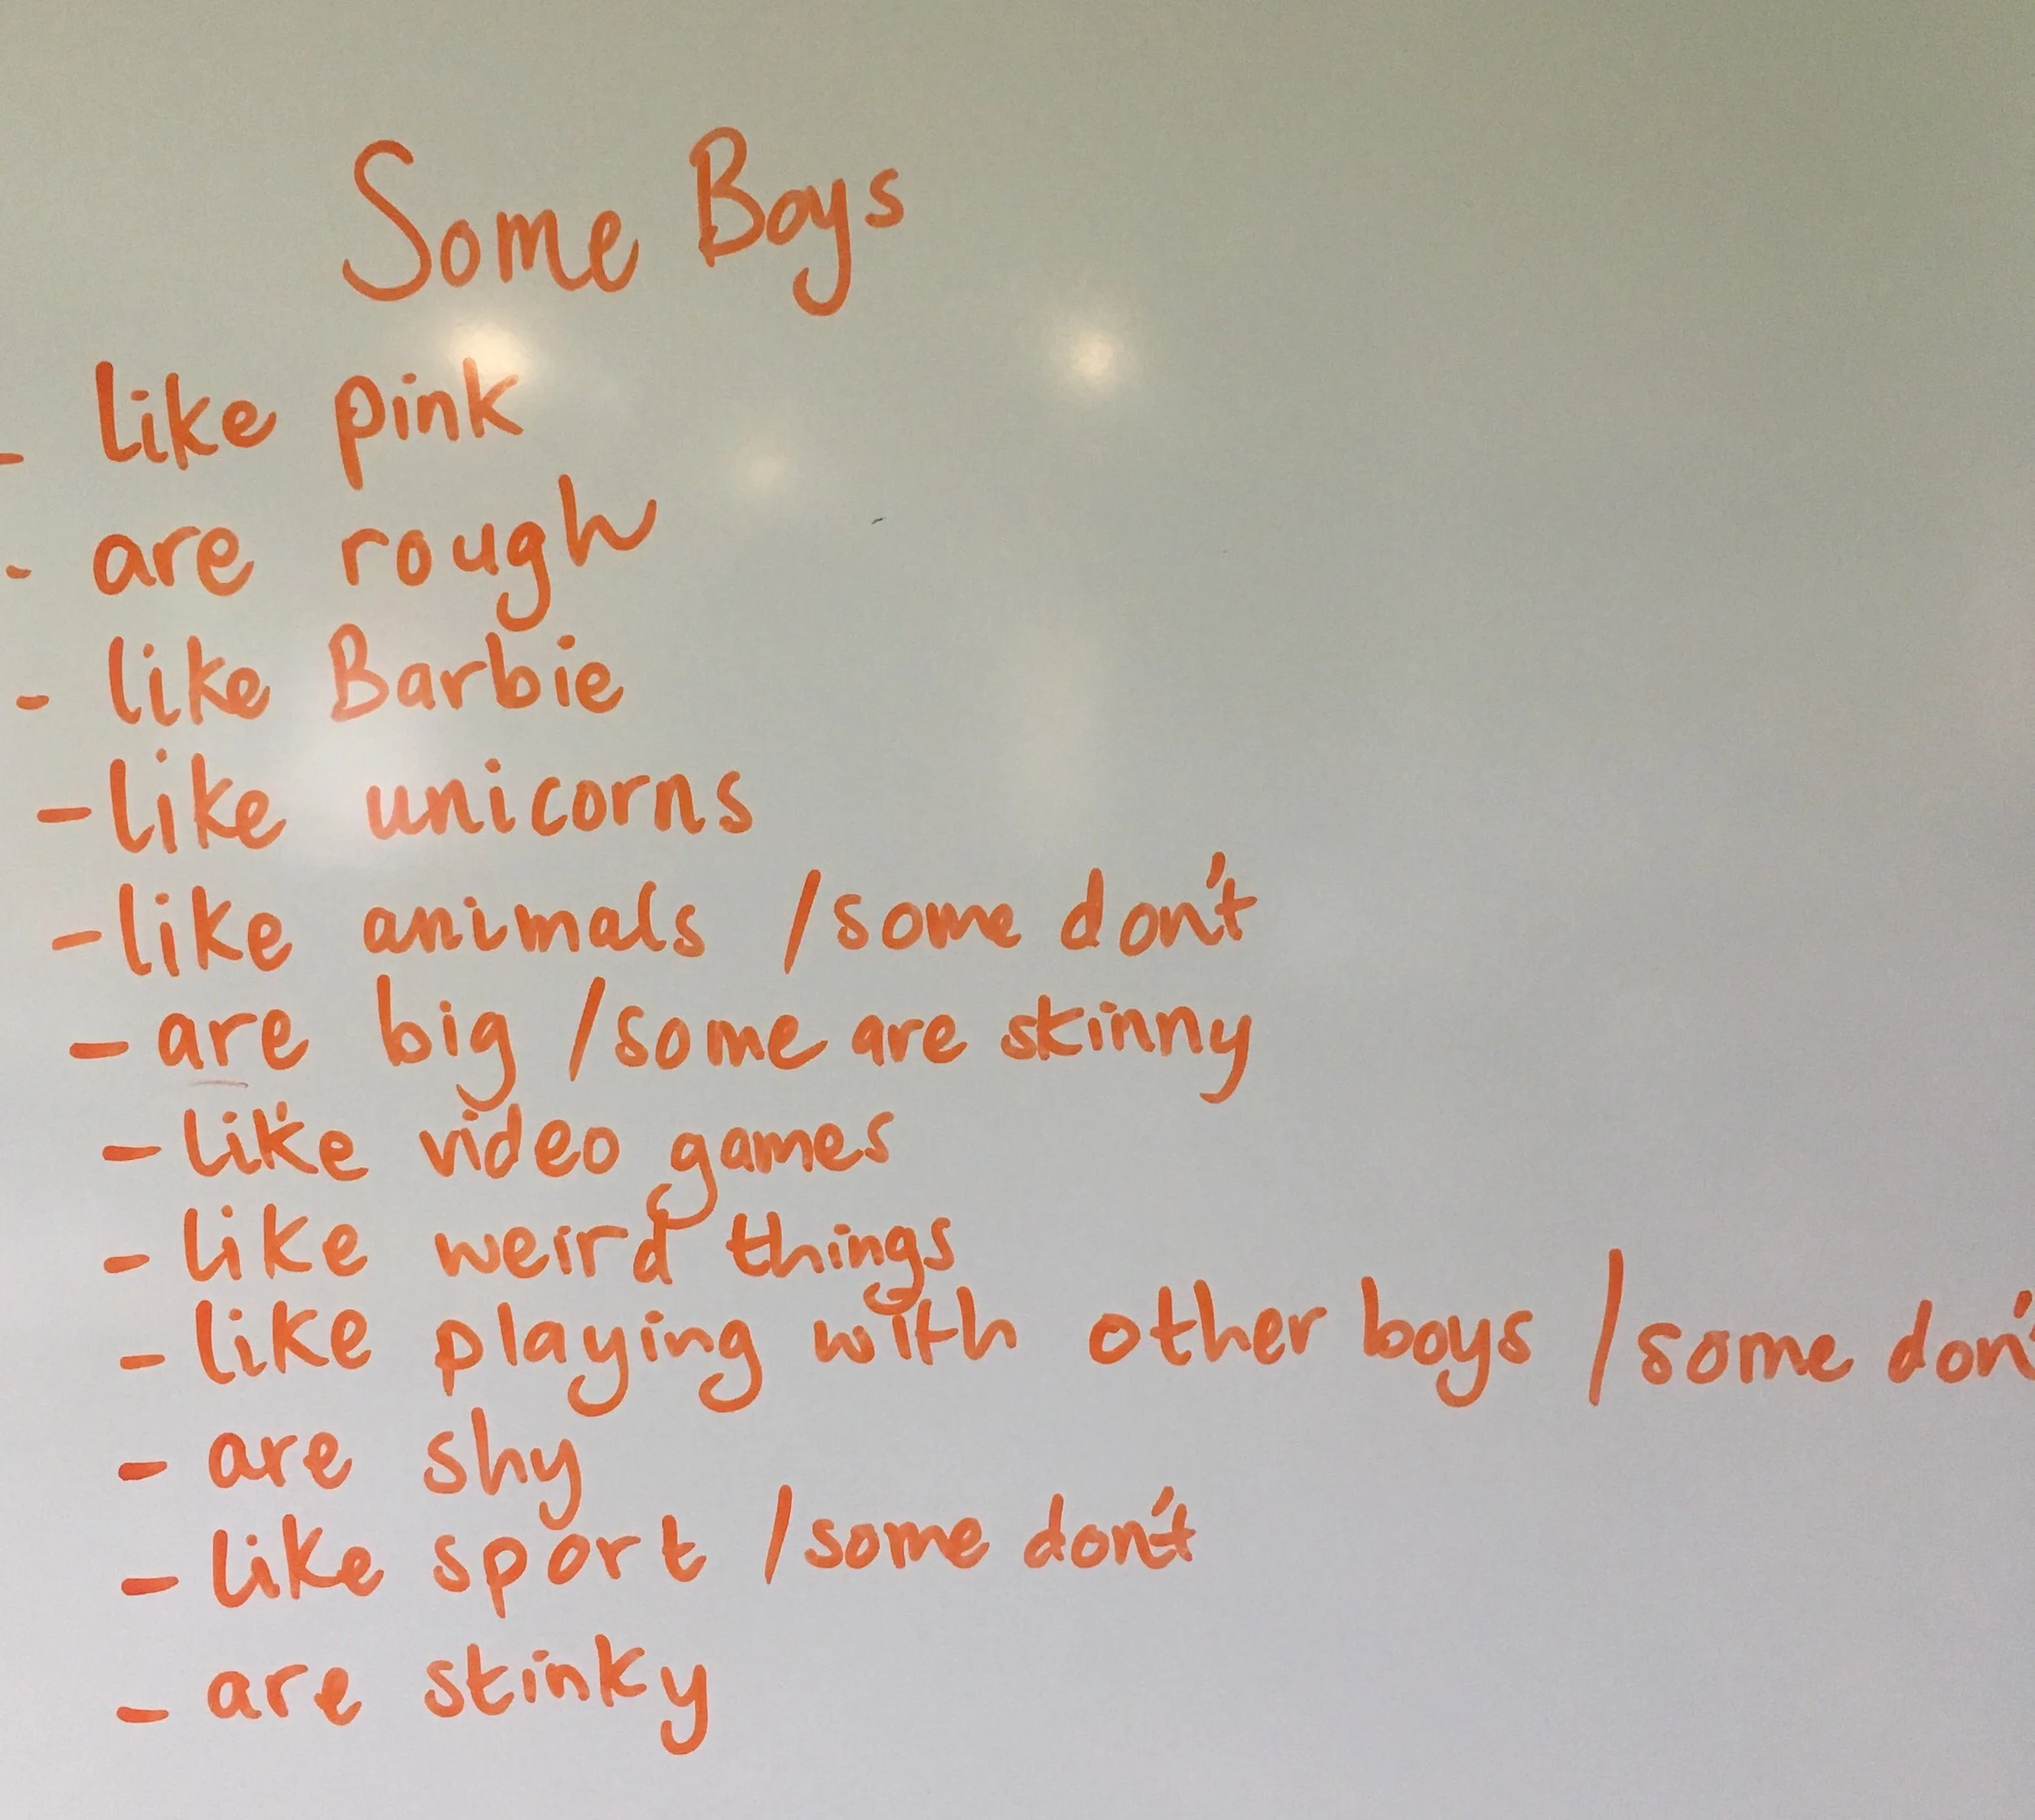 Some Boys
- like pink
- are rough
- like Barbie
- like unicorns
- like animals /some don't
- are big /some are skinny
- like video games
- like weird things
- like playing with other boys /some don'
- are shy
- like sport /some don't
- are stinky